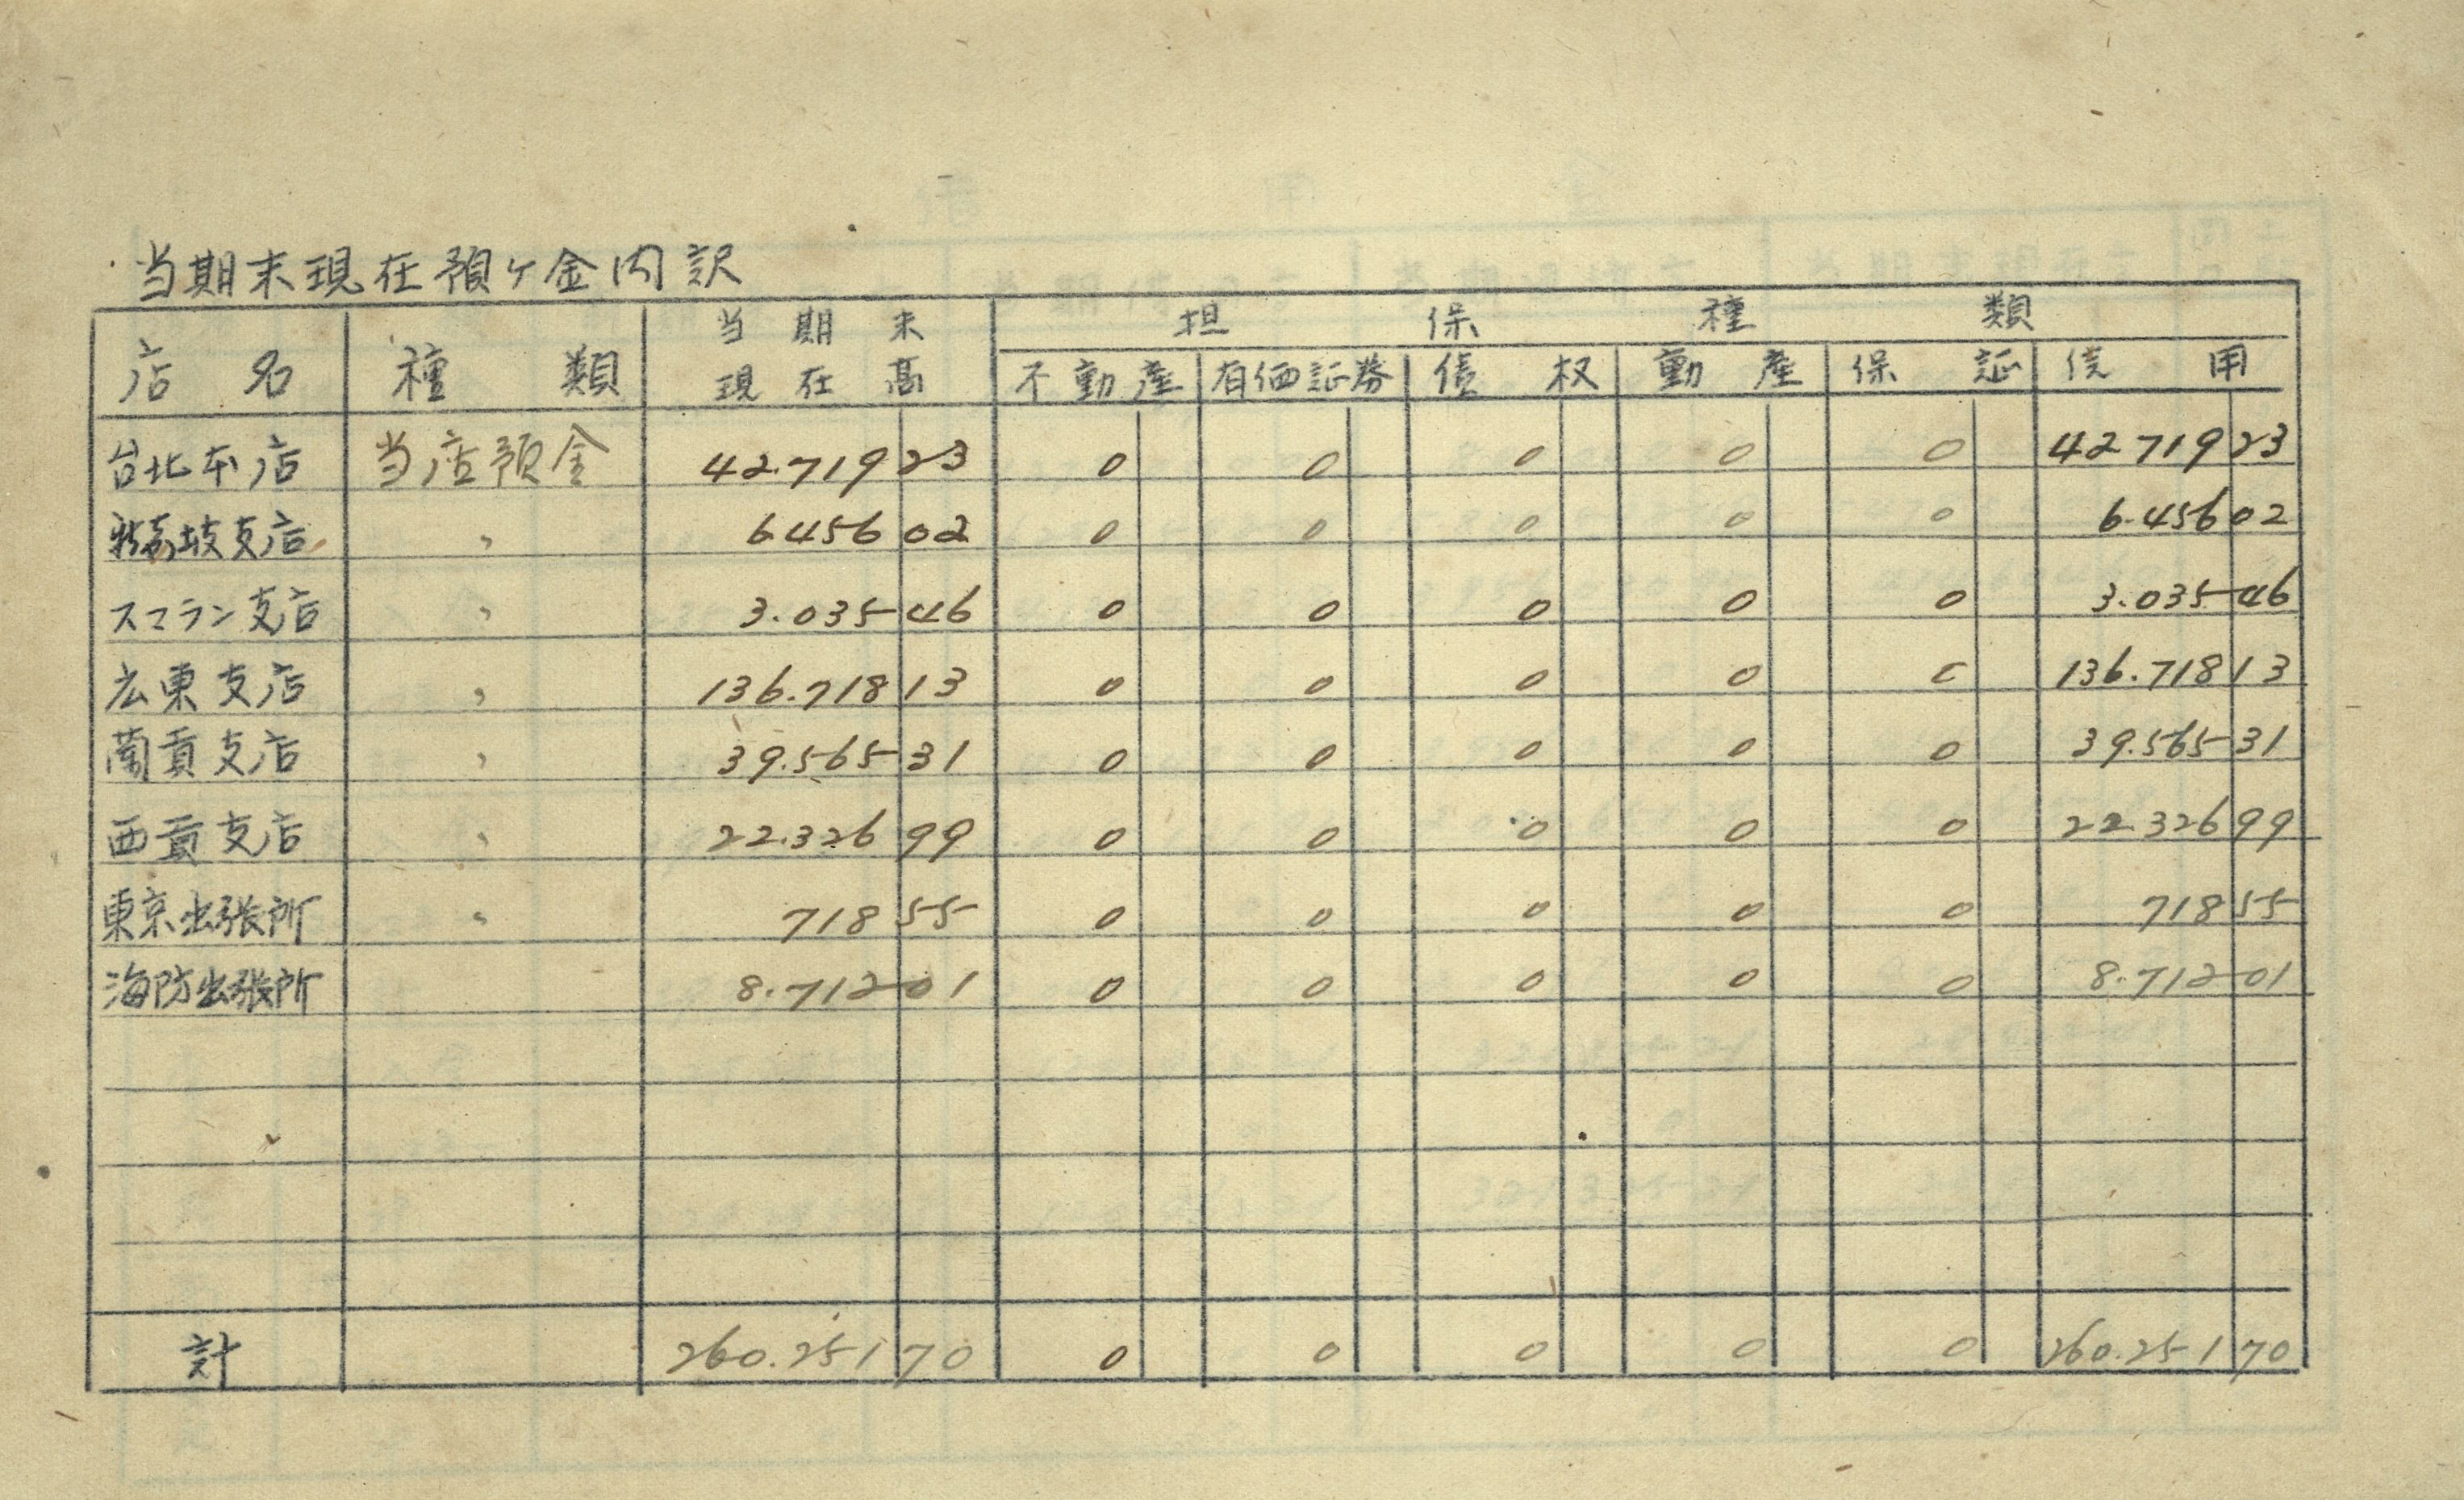 当期末現在預ケ金内訳
店名 種類 当期末現在高 担保種類
不動産 有価証券 債权 動産 保証 信用
台北本店 当店預金 42.719 23 0 0 0 0 0 42 719 23
新嘉坡支店 〃 6.456 02 0 0 0 0 0 6.456 02
スマラン支店 〃 3.035 46 0 0 0 0 0 3.035 46
広東支店 〃 136.718 13 0 0 0 0 0 136.718 13
蘭貢支店 〃 39.565 31 0 0 0 0 0 39.565 31
西貢支店 〃 22.326 99 0 0 0 0 0 22.326 99
東京出張所 〃 718 55 0 0 0 0 0 718 55
海防出張所 8.712 01 0 0 0 0 0 8.712 01
計 260.251 70 0 0 0 0 0 260.251 70